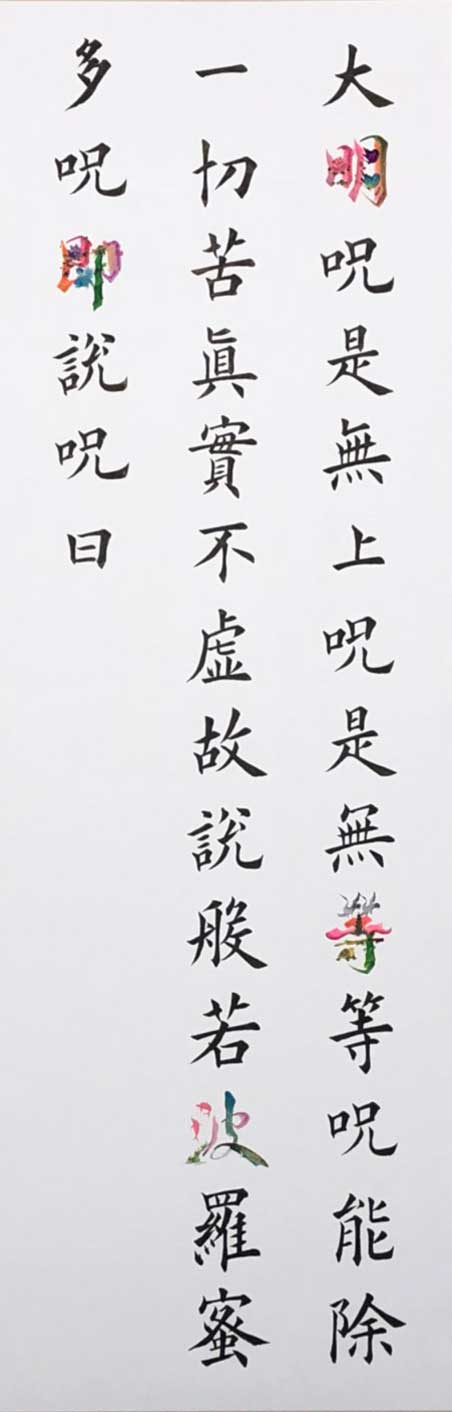 大明呪是無上呪是無等等呪能除
一切苦眞實不虛故說般若波羅蜜
多呪即說呪曰